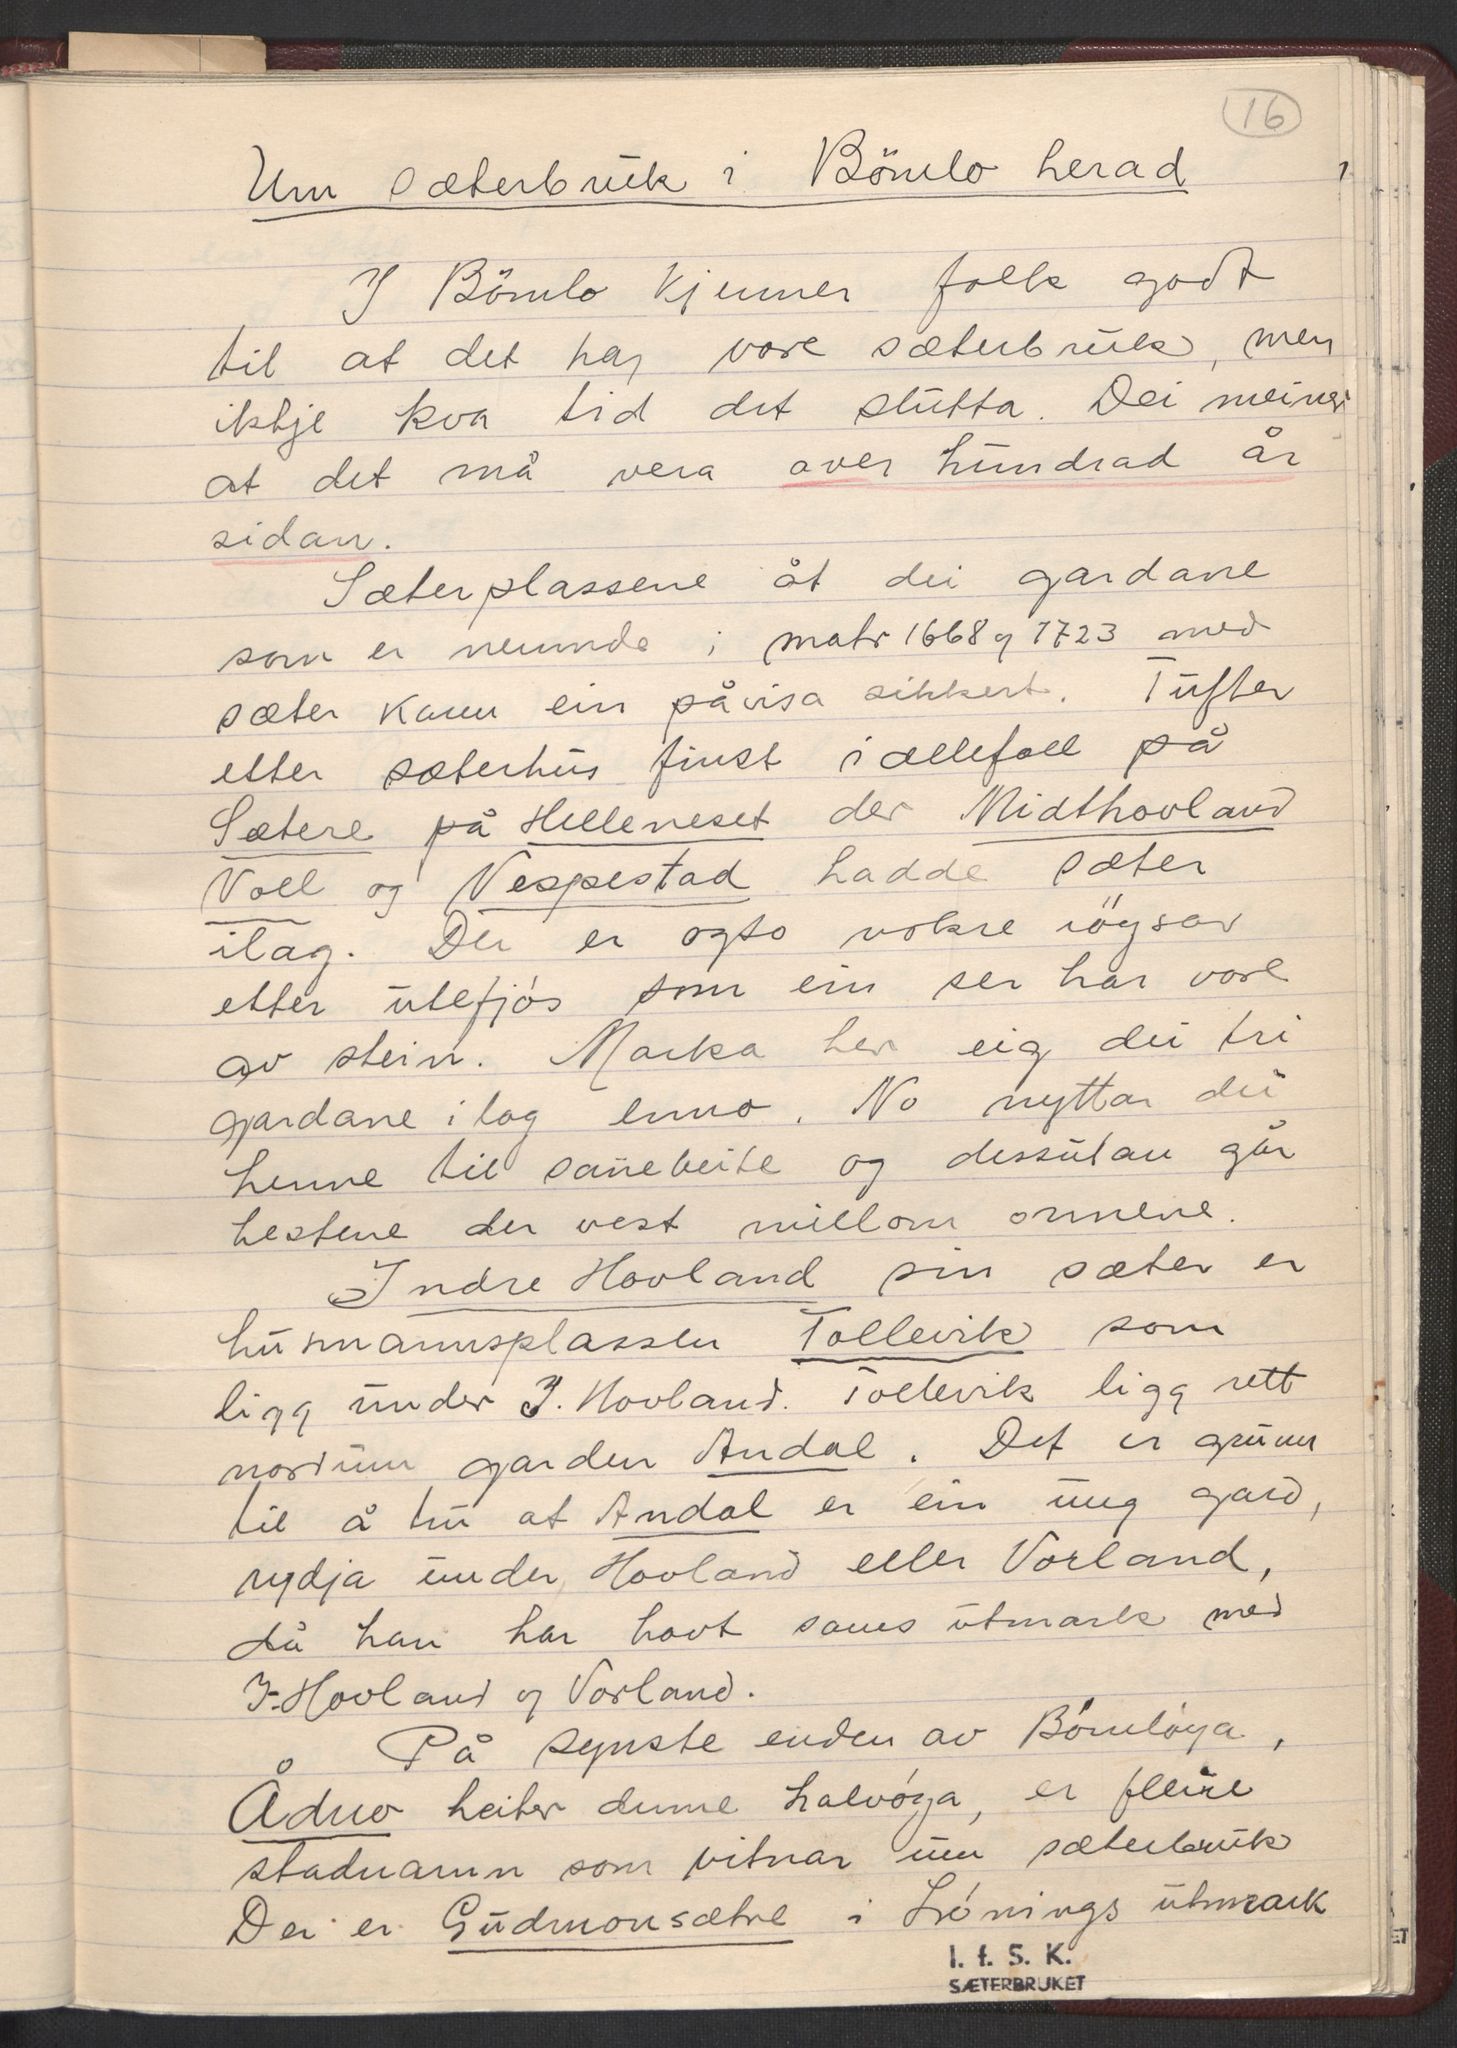 16
Um sæterbruk i Bömlo herad
I Bömlo kjenner folk godt
til at det har vore sæterbruk, men
ikkje kva tid det slutta. Dei meiner
at det må vera over hundrad år
sidan.
Sæterplassene åt dei gardane
som er nemnde i matr 1668 og 1723 med
sæter kann ein påvisa sikkert. Tufter
etter sæterhus finst i allefall på
Sætere på Helleneset der Midthovland
Voll og Vespestad hadde sæter
ilag. Der er ogso nokre röysar
etter utefjös som ein ser har vore
av stein. Marka her eig dei tri
gardane i lag enno. No nyttar dei
henne til sauebeite og dessutan går
hestene der vest millom onnene.
Indre Hovland sin sæter er
husmannsplassen Tollevik som
ligg under I. Hovland. Tollevik ligg rett
nordum garden Andal. Det er grunn
til å tru at Andal er ein ung gard,
rydja under Hovland eller Vorland,
då han har havt sams utmark med
I. Hovland og Vorland.
På synste enden av Bömlöya,
Ådno heiter denne halvöya, er fleire
stadnamn som vitnar um sæterbruk
Der er Gudmonsætre i Lönings utmark
I. f. S. K.
SÆTERBRUKET